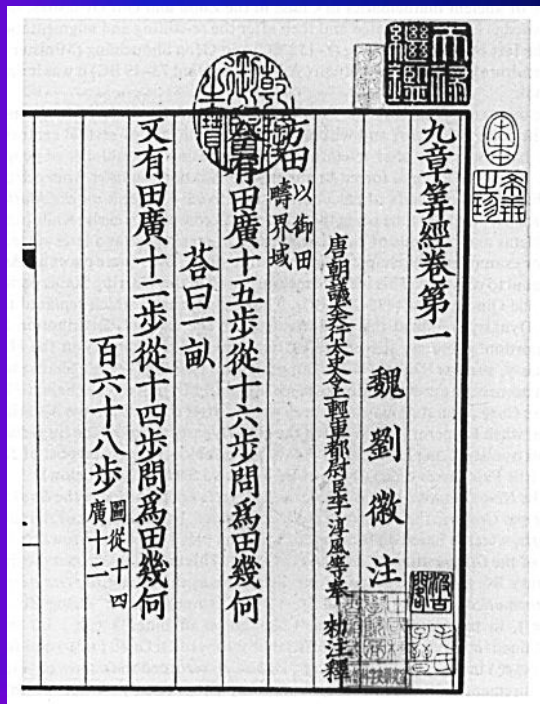 天祿繼鑑
宋本
希世之珍
九章筭經卷第一
魏劉徽注
唐朝議大夫行太史令上輕車都尉臣李淳風等奉 勑注釋
乾隆御覽之寶
方田 以御田
疇界域
今有田廣十五步從十六步問爲田幾何
荅曰一畝
又有田廣十二步從十四步問爲田幾何
百六十八步 圖從十四
廣十二